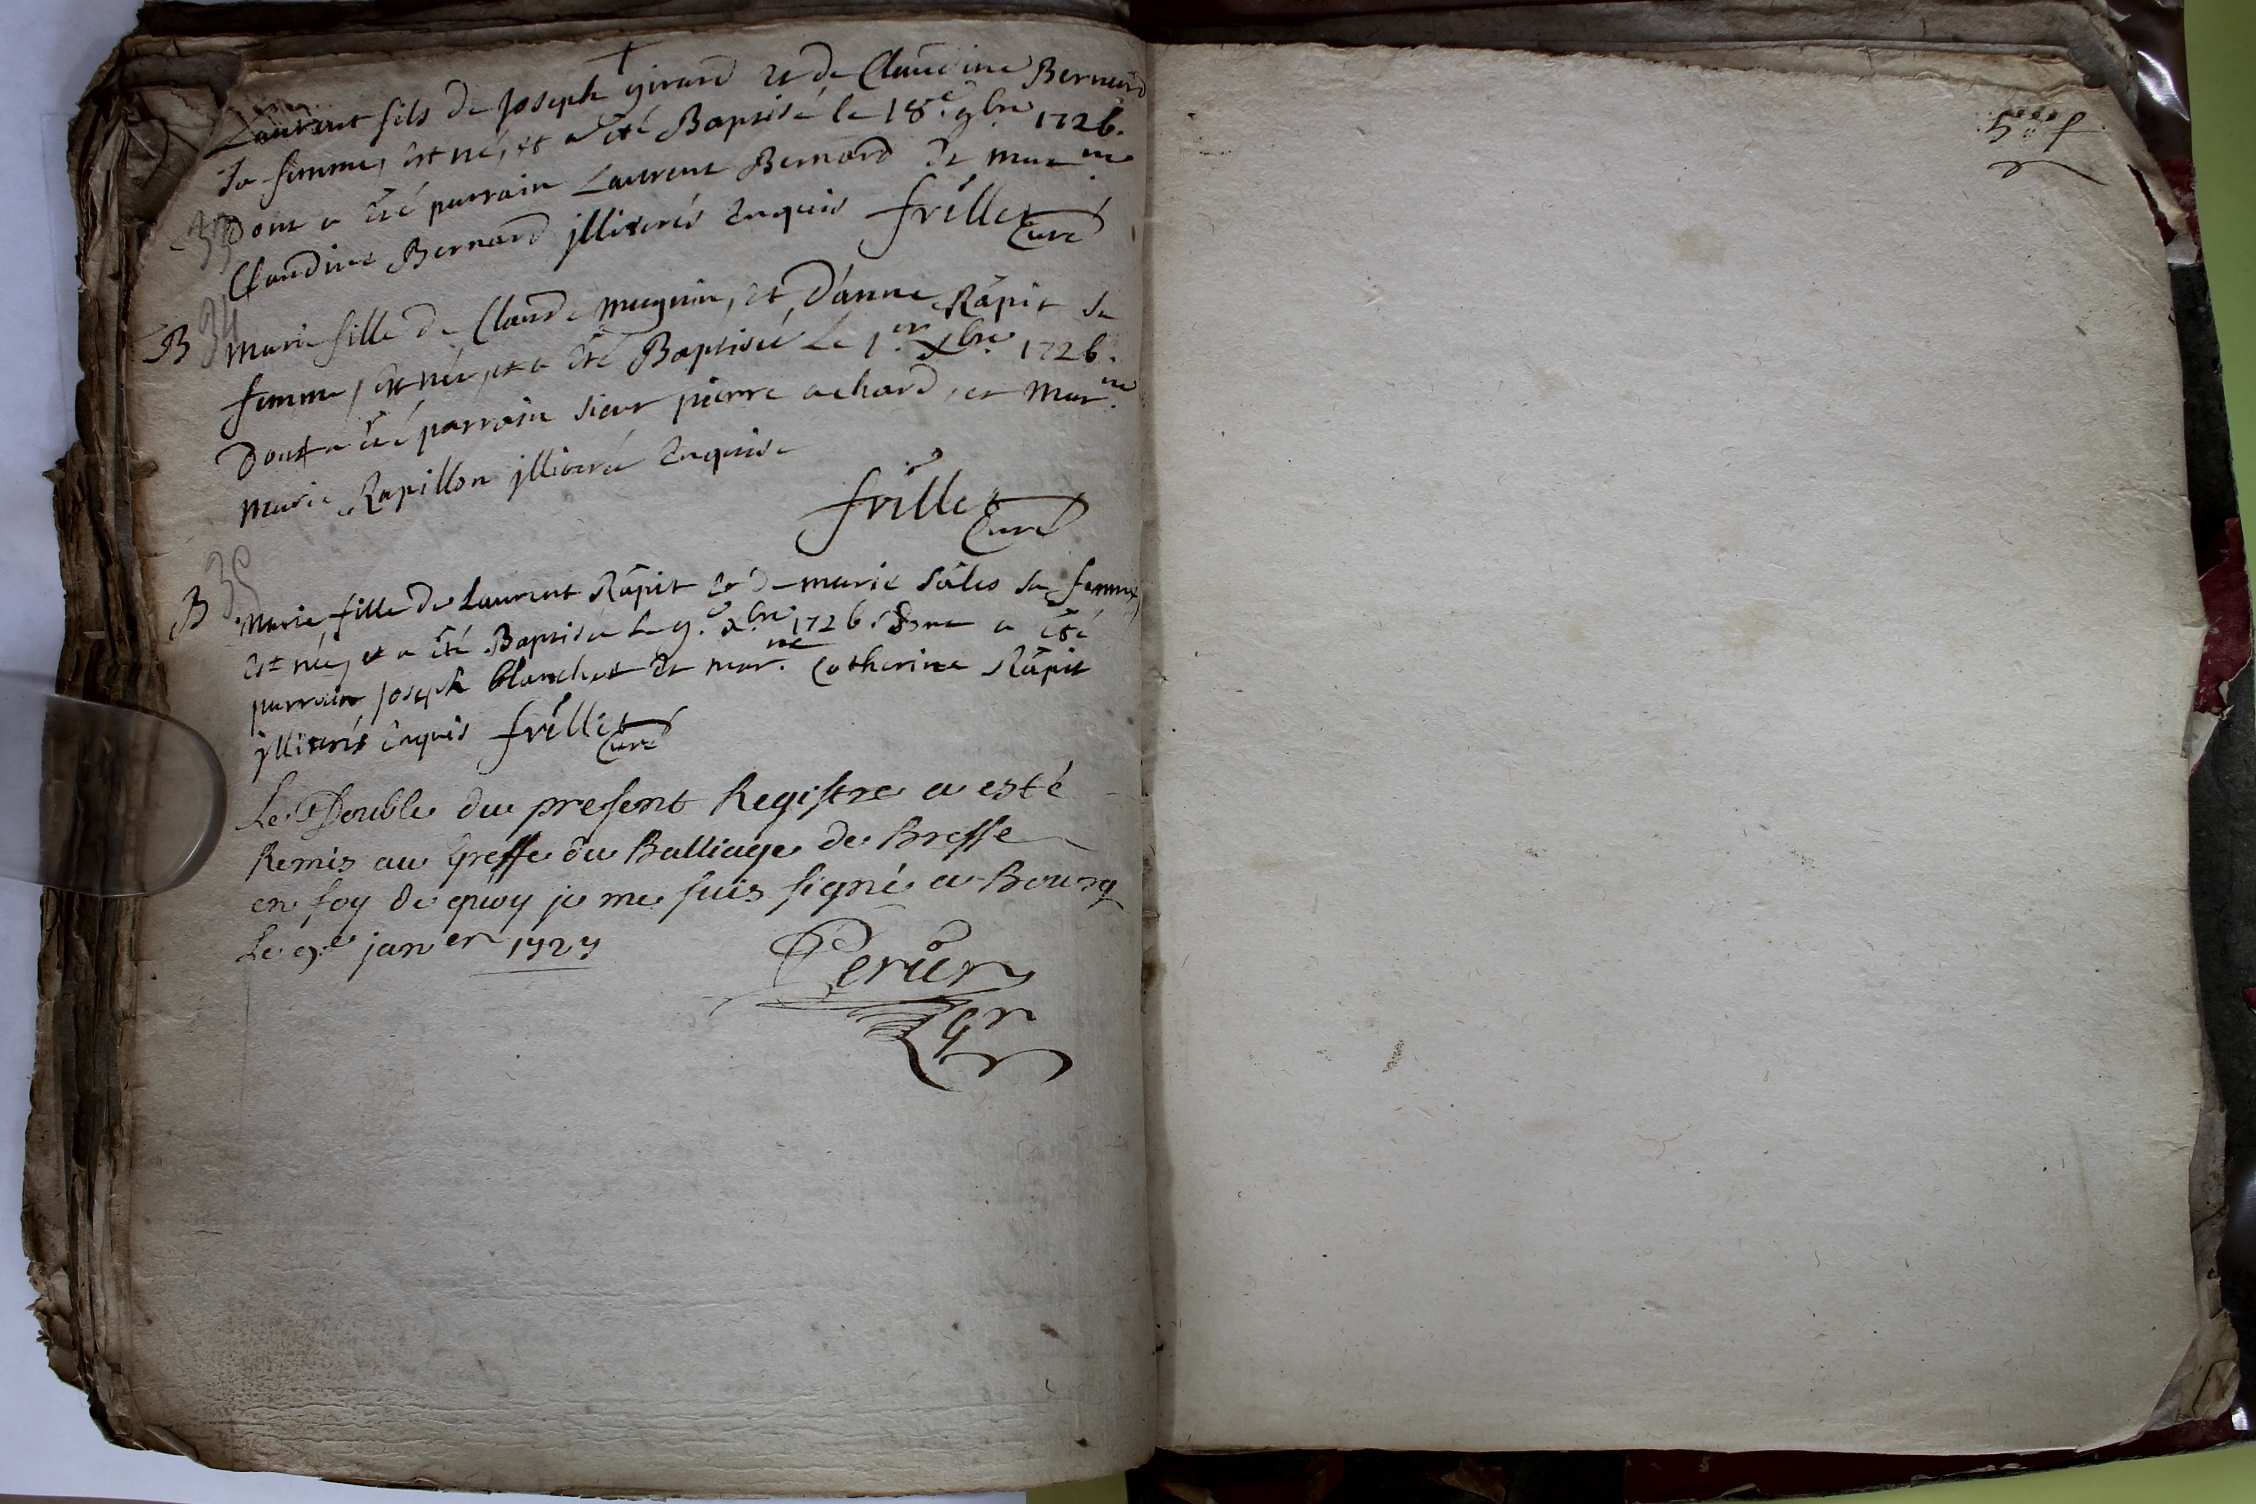 Laurent fils de Joseph girard et de Claudine Bernard
sa femme, est né, et a été Baptisé le 18.e 9bre 1726.
33 Dont a été parrain Laurent Bernard et marne
Claudine Bernard jllitérés Enquis frillet Curé
B 34 Marie fille de Claude mugnin, et D'anne Râpit sa
femme, est née, et a été Baptisée Le 1.er Xbre 1726.
Dont a été parrain sieur pierre achard, et Mar.ne
Marie Rapillon jlliterée Enquise
frillet Curé
B 35 Marie fille de Laurent Râpit et de marie Sâles sa femme
est née, et a été Baptisée le 9.e Xbre 1726. Dont a été
parrain Joseph blanchet et mar.ne Catherine Râpit
jllitérés Enquis frillet Curé
Le Double du present Registre a esté
Remis au Greffe du Balliage de Bresse
en foy de quoy je me suis signé a Bourg
Le 9.e janer 1727
Perier
Gr